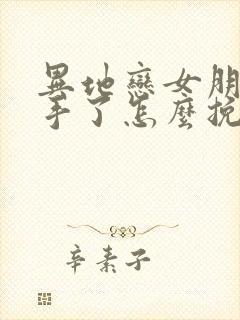 異地戀女朋
手了怎麼挽
辛素子